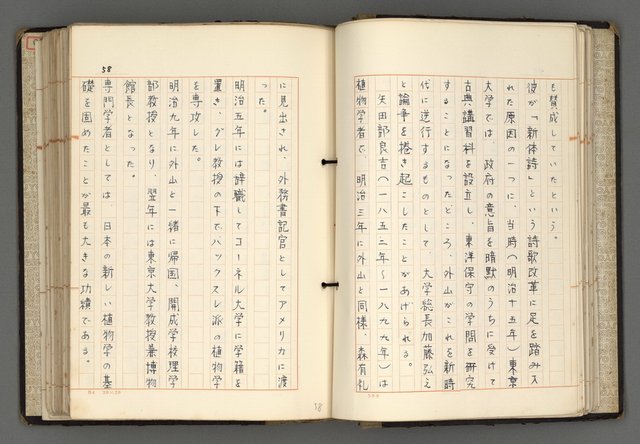 も賛成していたという。
彼が「新体詩」という詩歌改革に足を踏み入
れた原因の一つに、当時(明治十五年)東京
大学では、政府の意旨を暗黙のうちに受けて
古典講習科を設立し、東洋保守の学問を研究
することになったところ、外山がこれを新時
代に逆行するものとして、大学総長加藤弘之
と論争を捲き起こしたことがあげられる。
矢田部良吉(一八五二年〜一八九九年)は
植物学者で、明治三年に外山と同様、森有礼
に見出され、外務書記官としてアメリカに渡
った。
明治五年には辞職してコーネル大学に学籍を
置き、グレ教授の下でハックスレ派の植物学
を専攻した。
明治九年に外山と一緒に帰国、開成学校理学
部教授となり、翌年には東京大学教授兼博物
館長となった。
専門学者としては、日本の新しい植物学の基
礎を固めたことが最も大きな功績である。
58
58